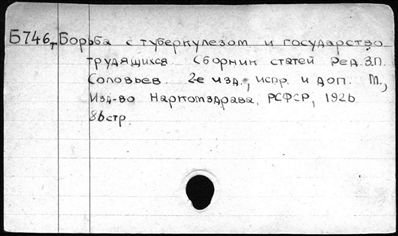 Б746, Борьба с туберкулезом и государство
трудящихся. Сборник статей Ред. З.П.
Соловьев. 2е изд., испр. и доп. М.,
Изд-во Наркомздрава, РСФСР, 1926
86стр.